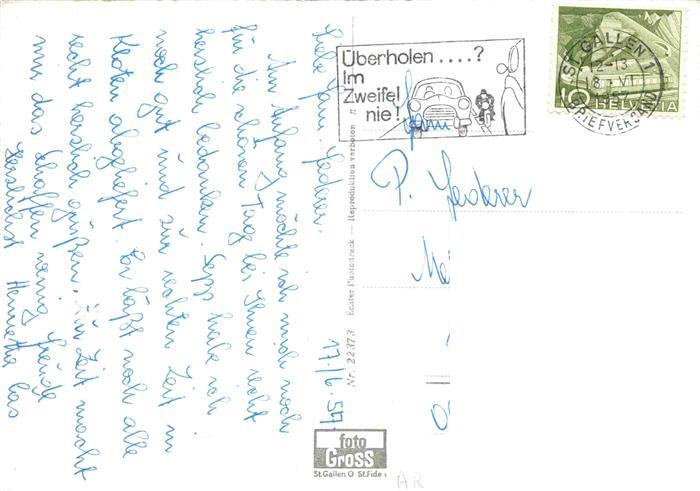 17./6. 57.
Liebe Fam. Federer.
Am Anfang möchte ich mich noch
für die schönen Tage bei Ihnen recht
herzlich bedanken. Sepp habe ich
noch gut und zur rechten Zeit in
Kloten abgeliefert. Er läßt noch alle
recht herzlich grüßen. Zeit macht
mir das Schaffen wenig Freude
Herzlichst
Überholen ....?
Im
Zweifel
nie!
ST. GALLEN 1
12-13
18. VI
BRIEFVERSAND
10 HELVETIA
Fam
P. Federer
Nr. 22373 Echter Photodruck — Reproduktion verboten
foto
Gross
St. Gallen O St. Fide
AR